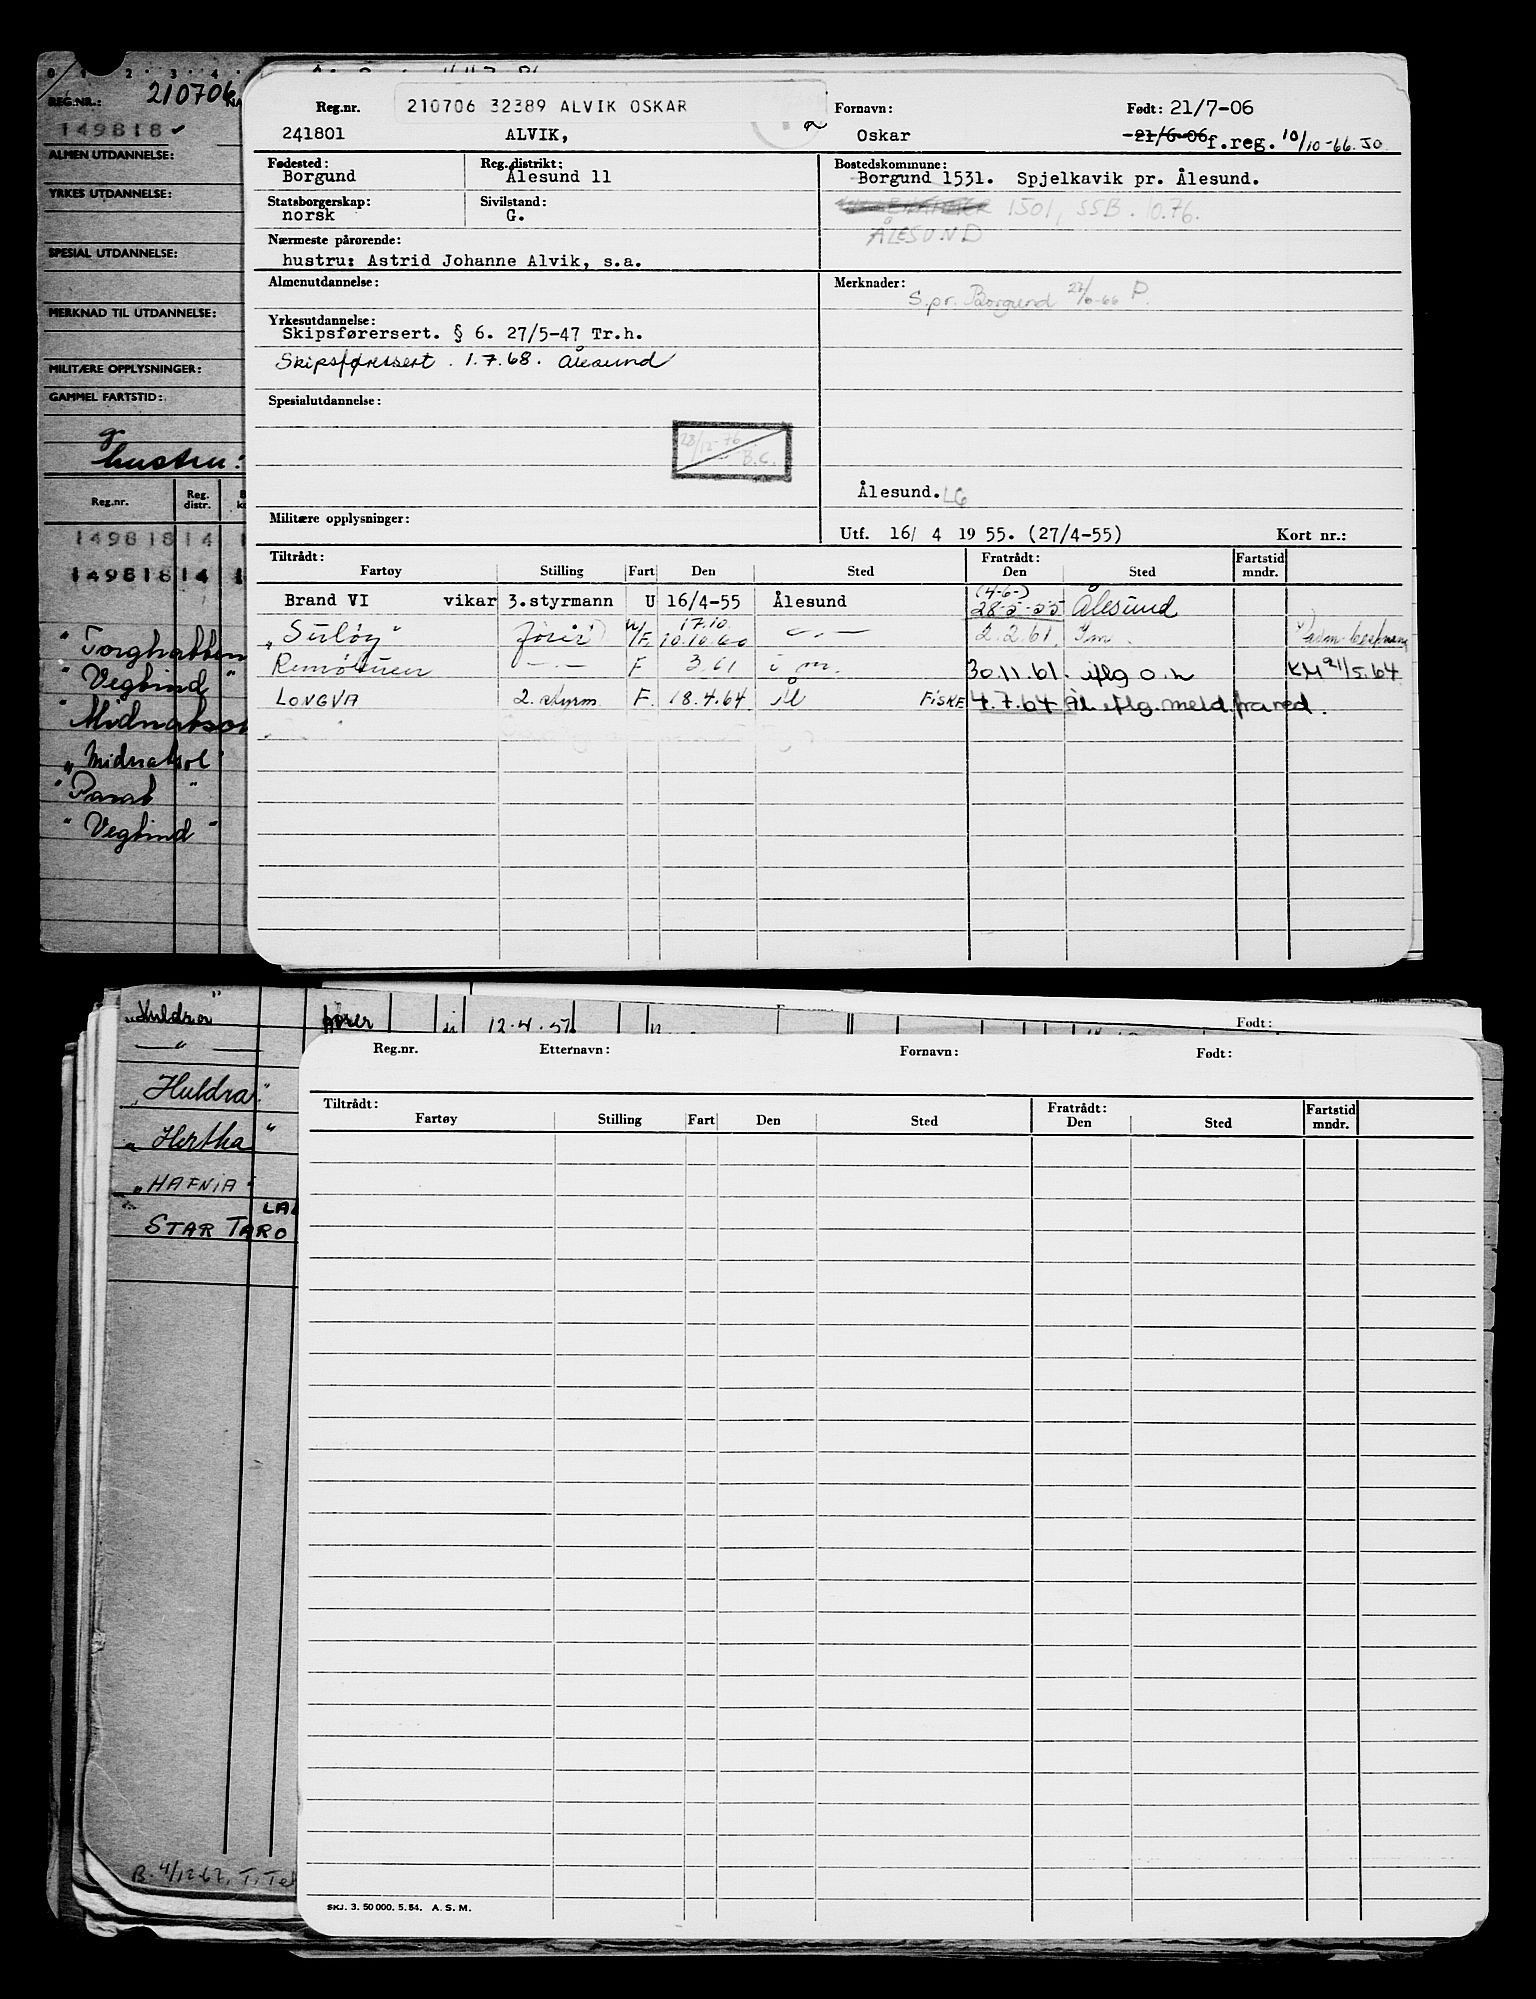 0 1 2 3 4
REG.NR.: 210706 NA
149818 ✓
ALMEN UTDANNELSE:
YRKES UTDANNELSE:
SPESIAL UTDANNELSE:
MERKNAD TIL UTDANNELSE:
MILITÆRE OPPLYSNINGER:
GAMMEL FARTSTID:
hustru:
Reg.nr. Reg. distr.
149818 14 1
149818 14 1
"Torghatten
"Vegtind"
"Midnatsol
"Midnatsol"
"Parat"
"Vegtind"
Reg.nr. 210706 32389 ALVIK OSKAR Fornavn: Født: 21/7-06
241801 ALVIK, Oskar 21/6-06 f.reg. 10/10-66. JO.
Fødested: Reg.distrikt: Bostedskommune:
Borgund Ålesund 11 Borgund 1531. Spjelkavik pr. Ålesund.
Statsborgerskap: Sivilstand:
norsk G. 1501, SSB. 10.76.
Nærmeste pårørende: ÅLESUND
hustru: Astrid Johanne Alvik, s.a.
Almenutdannelse: Merknader:
S.pr. Borgund 27/6-66 P.
Yrkesutdannelse:
Skipsførersert. § 6. 27/5-47 Tr.h.
Skipsførersert. 1.7.68. Ålesund
Spesialutdannelse:
28/12-76 B.C.
Ålesund. LG
Militære opplysninger:
Utf. 16/ 4 1955. (27/4-55) Kort nr.:
Tiltrådt: Fratrådt: Fartstid
Fartøy Stilling Fart Den Sted Den Sted mndr.
Brand VI vikar 3.styrmann U 16/4-55 Ålesund (4-6-) 28-5-55 Ålesund
"Suløy" fører N/F. 17.10. 10.10.60 — " — 2.2.61. Im.
Remøtuen — " — F 3.61 i m. 30.11.61. iflg o.n KM 21/5.64
LONGVA 2. styrm. F. 18.4.64 Ål FISKE 4.7.64 Ål iflg. meld. fra red.
"Huldra" fører 12.4.57
— " —
"Huldra"
"Hertha"
"HAFNIA"
STAR TARO
B. 4/12-67, T.
Født:
Reg.nr. Etternavn: Fornavn: Født:
Tiltrådt: Fratrådt: Fartstid
Fartøy Stilling Fart Den Sted Den Sted mndr.
SKJ. 3. 50 000. 5. 54. A. S. M.